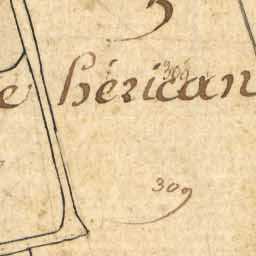 e hérican
308
309